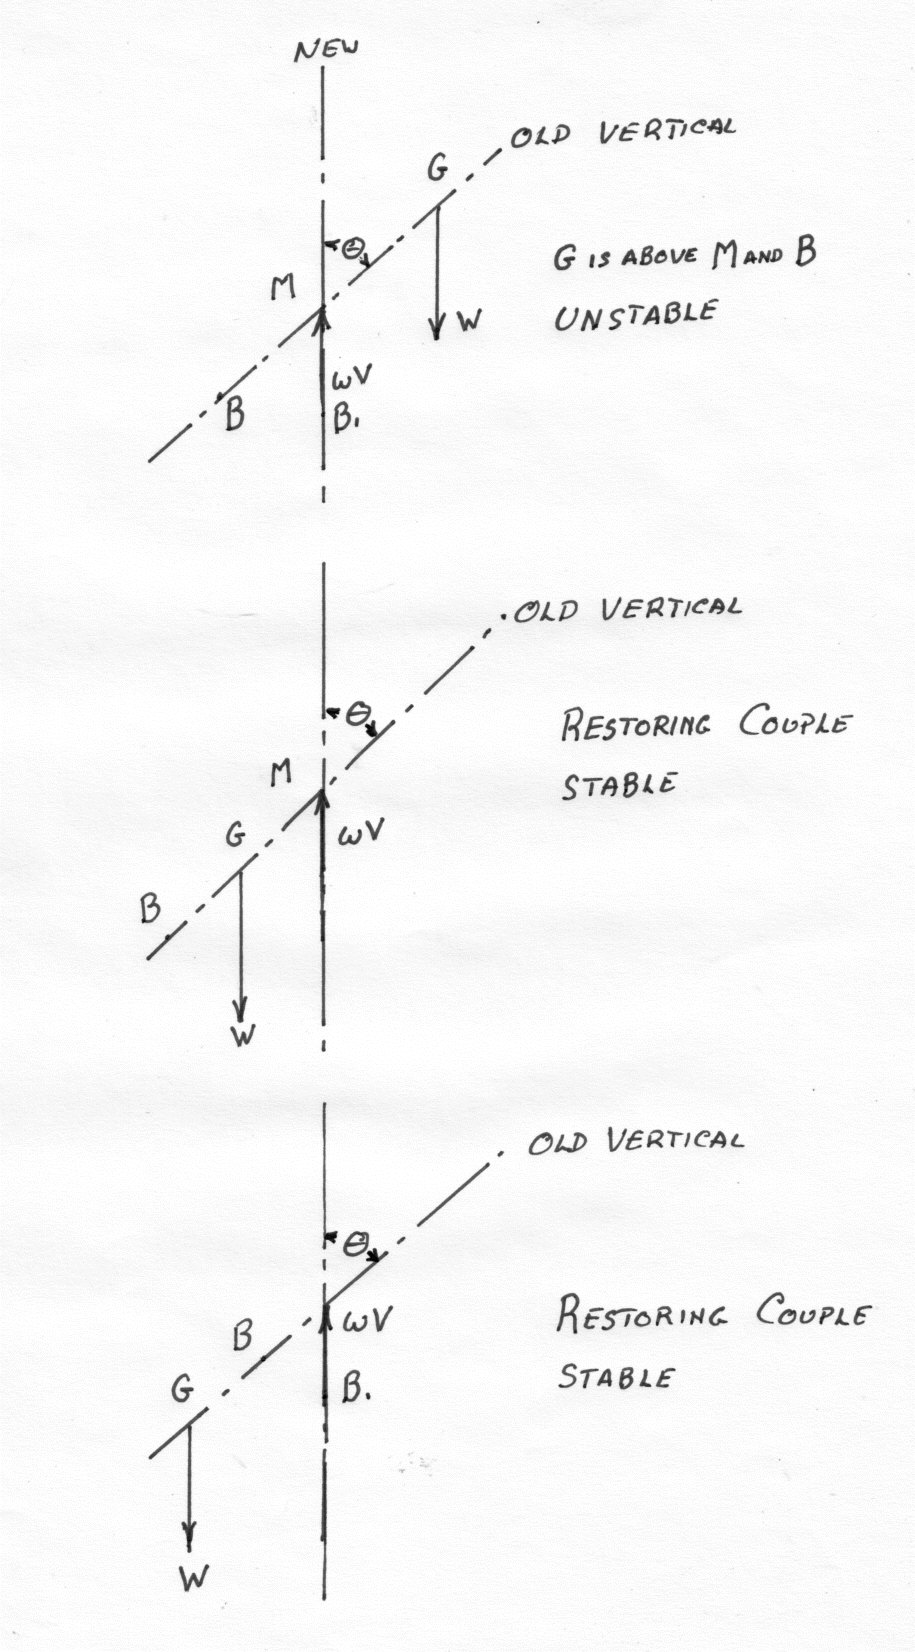 NEW
OLD VERTICAL
G
Θ
G IS ABOVE M AND B
M
W
UNSTABLE
ωV
B
B.
.OLD VERTICAL
Θ
RESTORING COUPLE
M
STABLE
G
ωV
B
W
OLD VERTICAL
Θ
RESTORING COUPLE
ωV
B
STABLE
G
B.
W